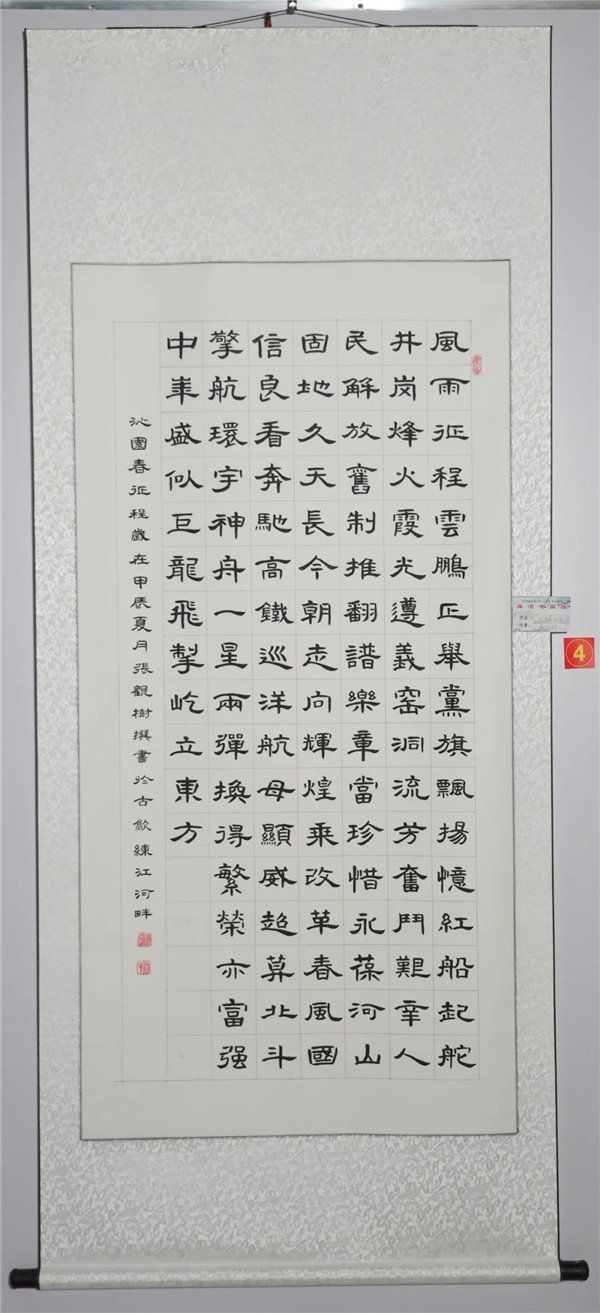 風雨征程雲鵬正舉黨旗飄揚憶紅船起舵
井岗烽火霞光遵義窑洞流芳奮鬥艱辛人
民解放舊制推翻譜樂章當珍惜永葆河山
固地久天長今朝走向輝煌乘改革春風國
信良看奔馳高鐵巡洋航母顯威超算北斗
擎航環宇神舟一星兩彈換得繁榮亦富强
中華盛似巨龍飛掣屹立東方
沁園春征程歲在甲辰夏月張觀樹撰書於古歙練江河畔
4